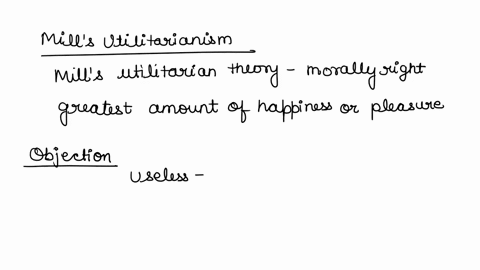 Mill's Utilitarianism
Mill's utilitarian theory - morally right
greatest amount of happiness or pleasure
Objection
Useless -